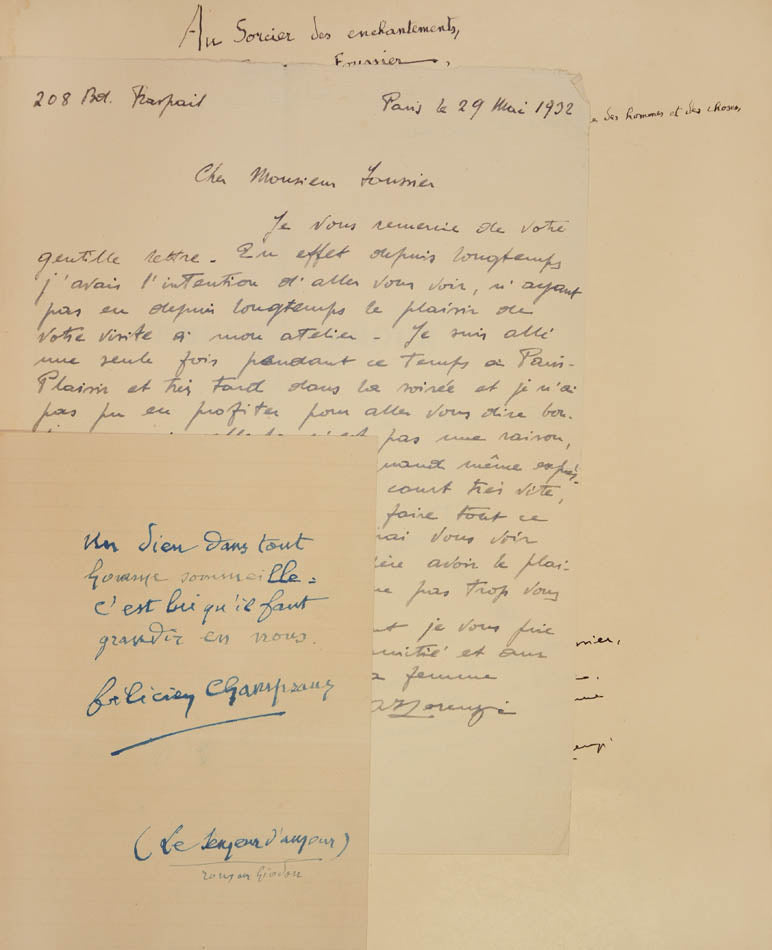 Au Sorcier des enchantements,
Foussier,
e des hommes et des choses,
208 Bd. Raspail
Paris le 29 Mai 1932
Cher Monsieur Foussier
Je vous remercie de votre
gentille lettre. En effet depuis longtemps
j'avais l'intention d'aller vous voir, n'ayant
pas eu depuis longtemps le plaisir de
votre visite à mon atelier. Je suis allé
une seule fois pendant ce temps à Paris-
Plaisir et très tard dans la soirée et je n'ai
pas pu en profiter pour aller vous dire bon-
pas une raison,
quand même
court très vite,
faire tout ce
rai vous voir
avoir le plai-
pas trop vous
je vous prie
amitié et aux
femme
Un dieu dans tout
homme sommeille :
c'est lui qu'il faut
grandir en nous.
Félicien Champsaur
(Le Semeur d'amour)
roman hindou